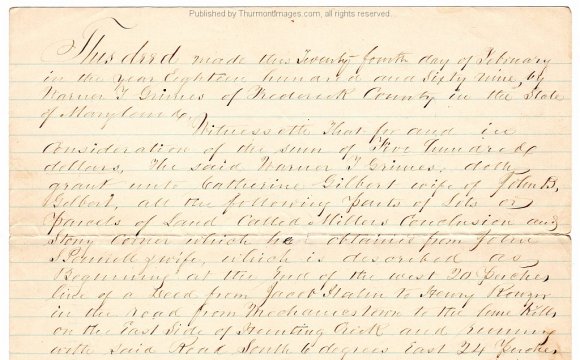 Published by ThurmontImages.com, all rights reserved.
This deed made this Twenty fourth day of February
in the year Eighteen hundred and Sixty Nine, by
Warner T Grimes of Frederick County in the State
of Maryland,
Witnesseth That for and in
Consideration of the sum of Five hundred
dollars, The said Warner T Grimes, doth
grant unto Catherine Gilbert wife of John B,
Gilbert, all the following Parts of Lots or
Parcels of Land Called Millers Conclusion and
Stony Corner which he obtained from John
wife, which is described as
Beginning at the End of the west 20 Perches
line of a Deed from Jacob to Henry
in the road from Mechanicstown to the lime Kiln
on the East Side of Hunting Creek and running
with said Road South 6 degrees East 24 Perches